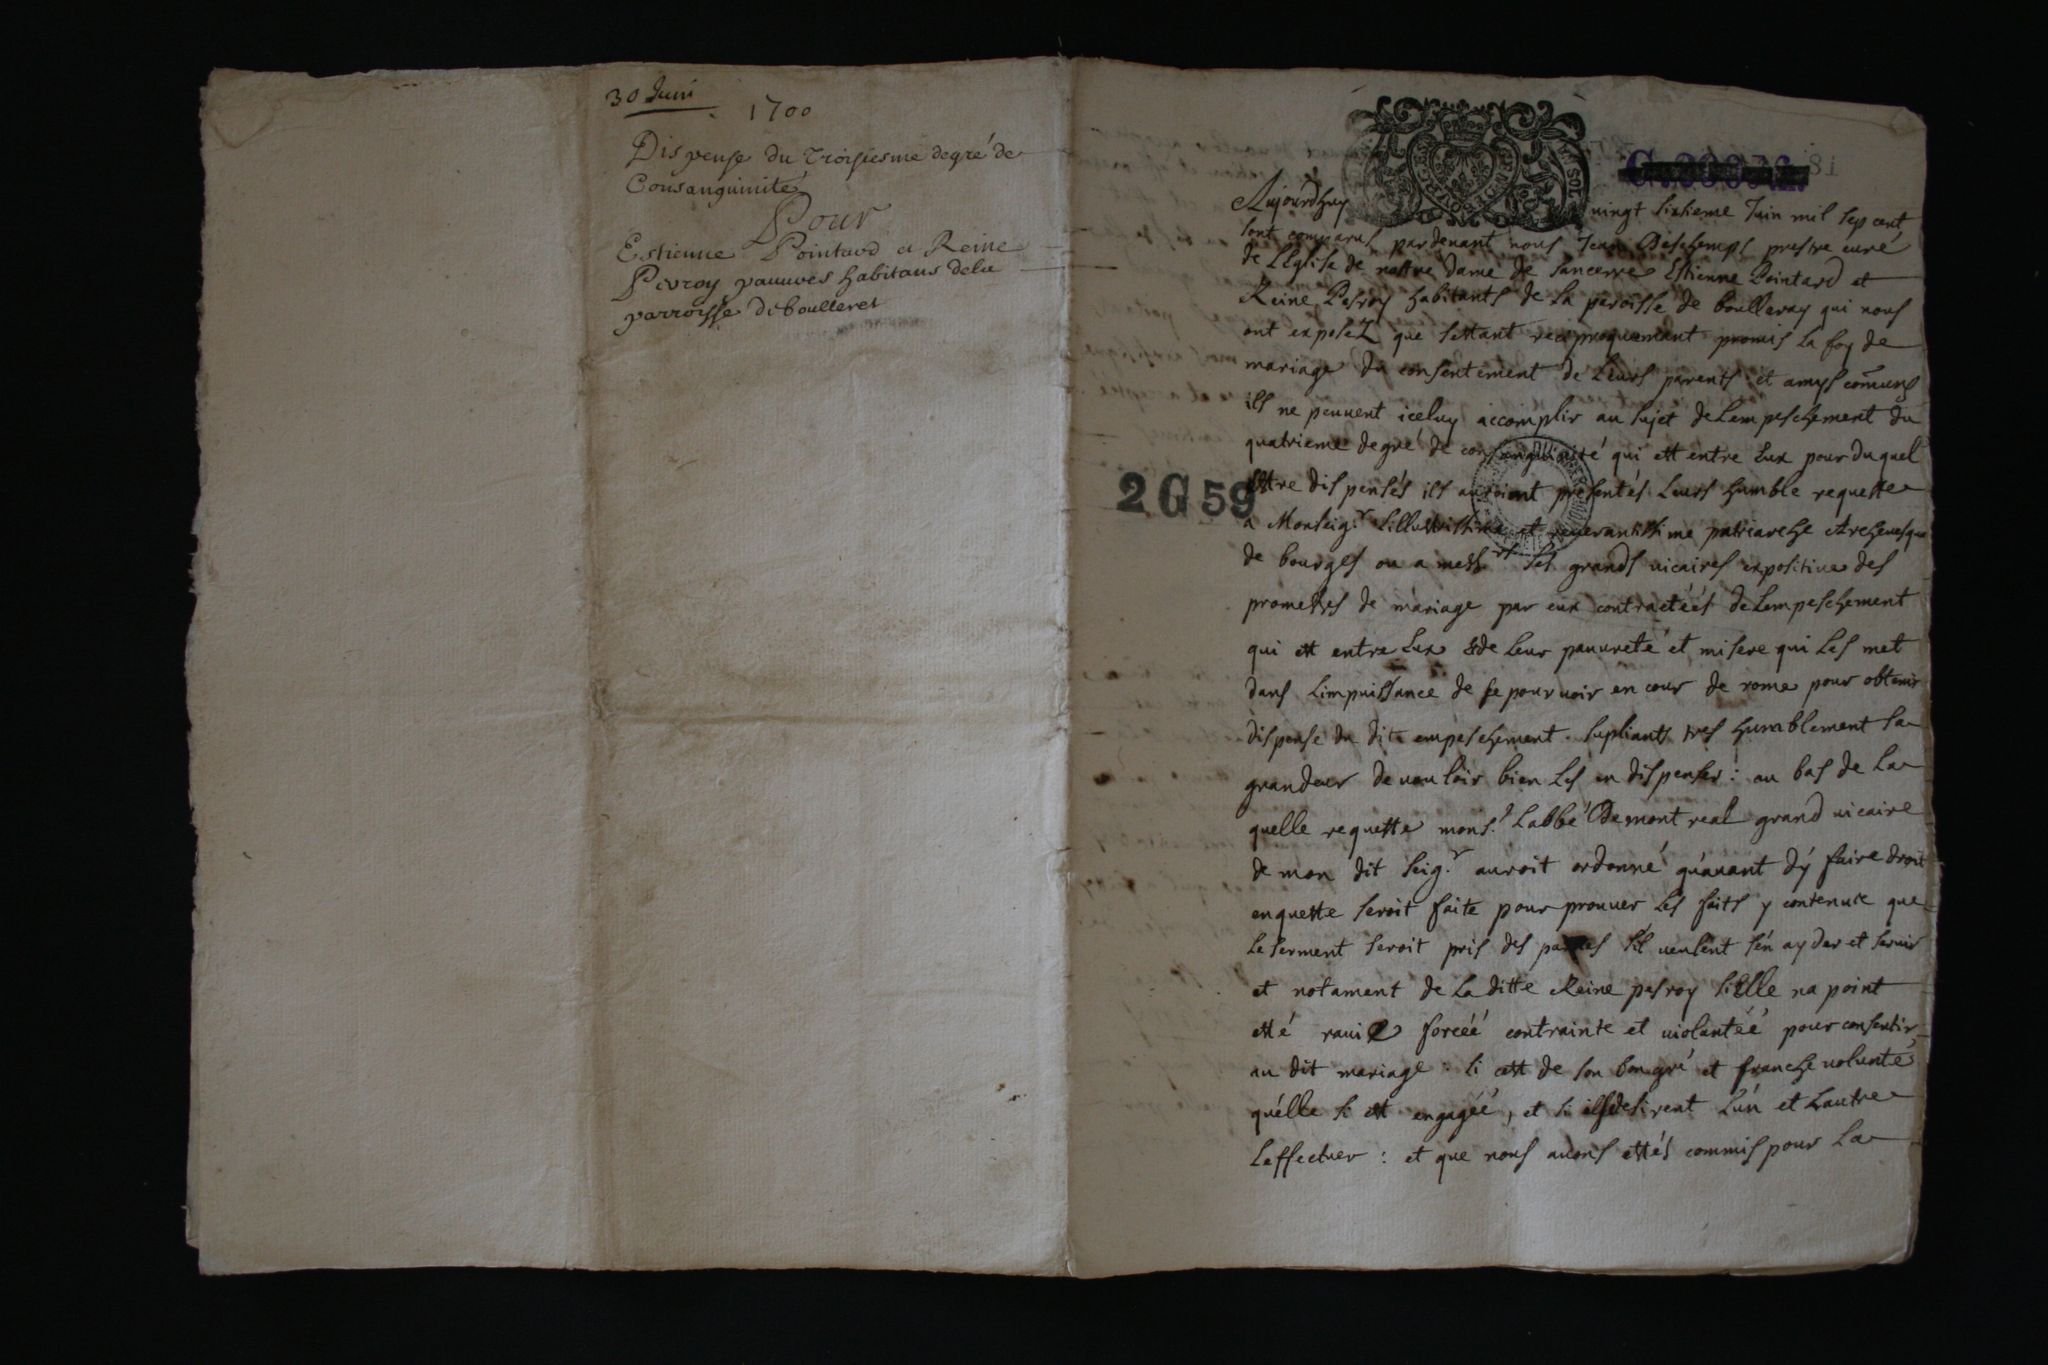 30 Juin
1700
Dispense du troisiesme degré de
Consanguinité
Pour
Estienne Pointard et Reine
Perroy pauures habitans dela
parroisse de boulleret
2 G 59
Aujourdhuy vingt sixieme Juin mil sep cent
sont comparus pardeuant nous Jean Deschamps prestre curé
de LEglise de nostre dame de sancerre Estienne Pointard et
Reine Pesroy habitants de la paroisse de boulleray qui nous
ont exposeZ que sestant reciproquemant promis la foy de
mariage du consentement de Leurs parents et amys comūns
ils ne peuuent iceluy accomplir au sujet de Lempeschement du
quatrieme degré de consanguinité qui est entre Eux pour du quel
estre dispensés ils auroient presentés Leurs humble requeste
a Monseig.r Lillustrissime et reuerantissime patriarche Archeuesque
de bourges ou a mess.rs ses grands uicaires expositiue des
promesses de mariage par eux contractéés de Lempeschement
qui est entre Eux & de Leur pauureté et misere qui Les met
dans Limpuissance de se pouruoir en cour de rome pour obtenir
dispense du dit empeschement. supliants tres humblement sa
grandeur de uouloir bien Les en dispenser : au bas de La
quelle requeste mons.r Labbé De mont real grand uicaire
de mon dit seig.r auroit ordonné qúauant dý faire droit
enqueste seroit faite pour prouuer Les faits y contenus que
Le serment seroit pris des parties sil ueulent sén ayder et seruir
et notament de La ditte Reine pesroy si Elle na point
esté rauie forcéé contrainte et uiolantéé pour consentir
au dit mariage : si cest de son bon gré et franche uolunté
quélle si est engagéé, et si ils desirent Lún et Lautre
Leffectuer : et que nous auons estés commis pour La